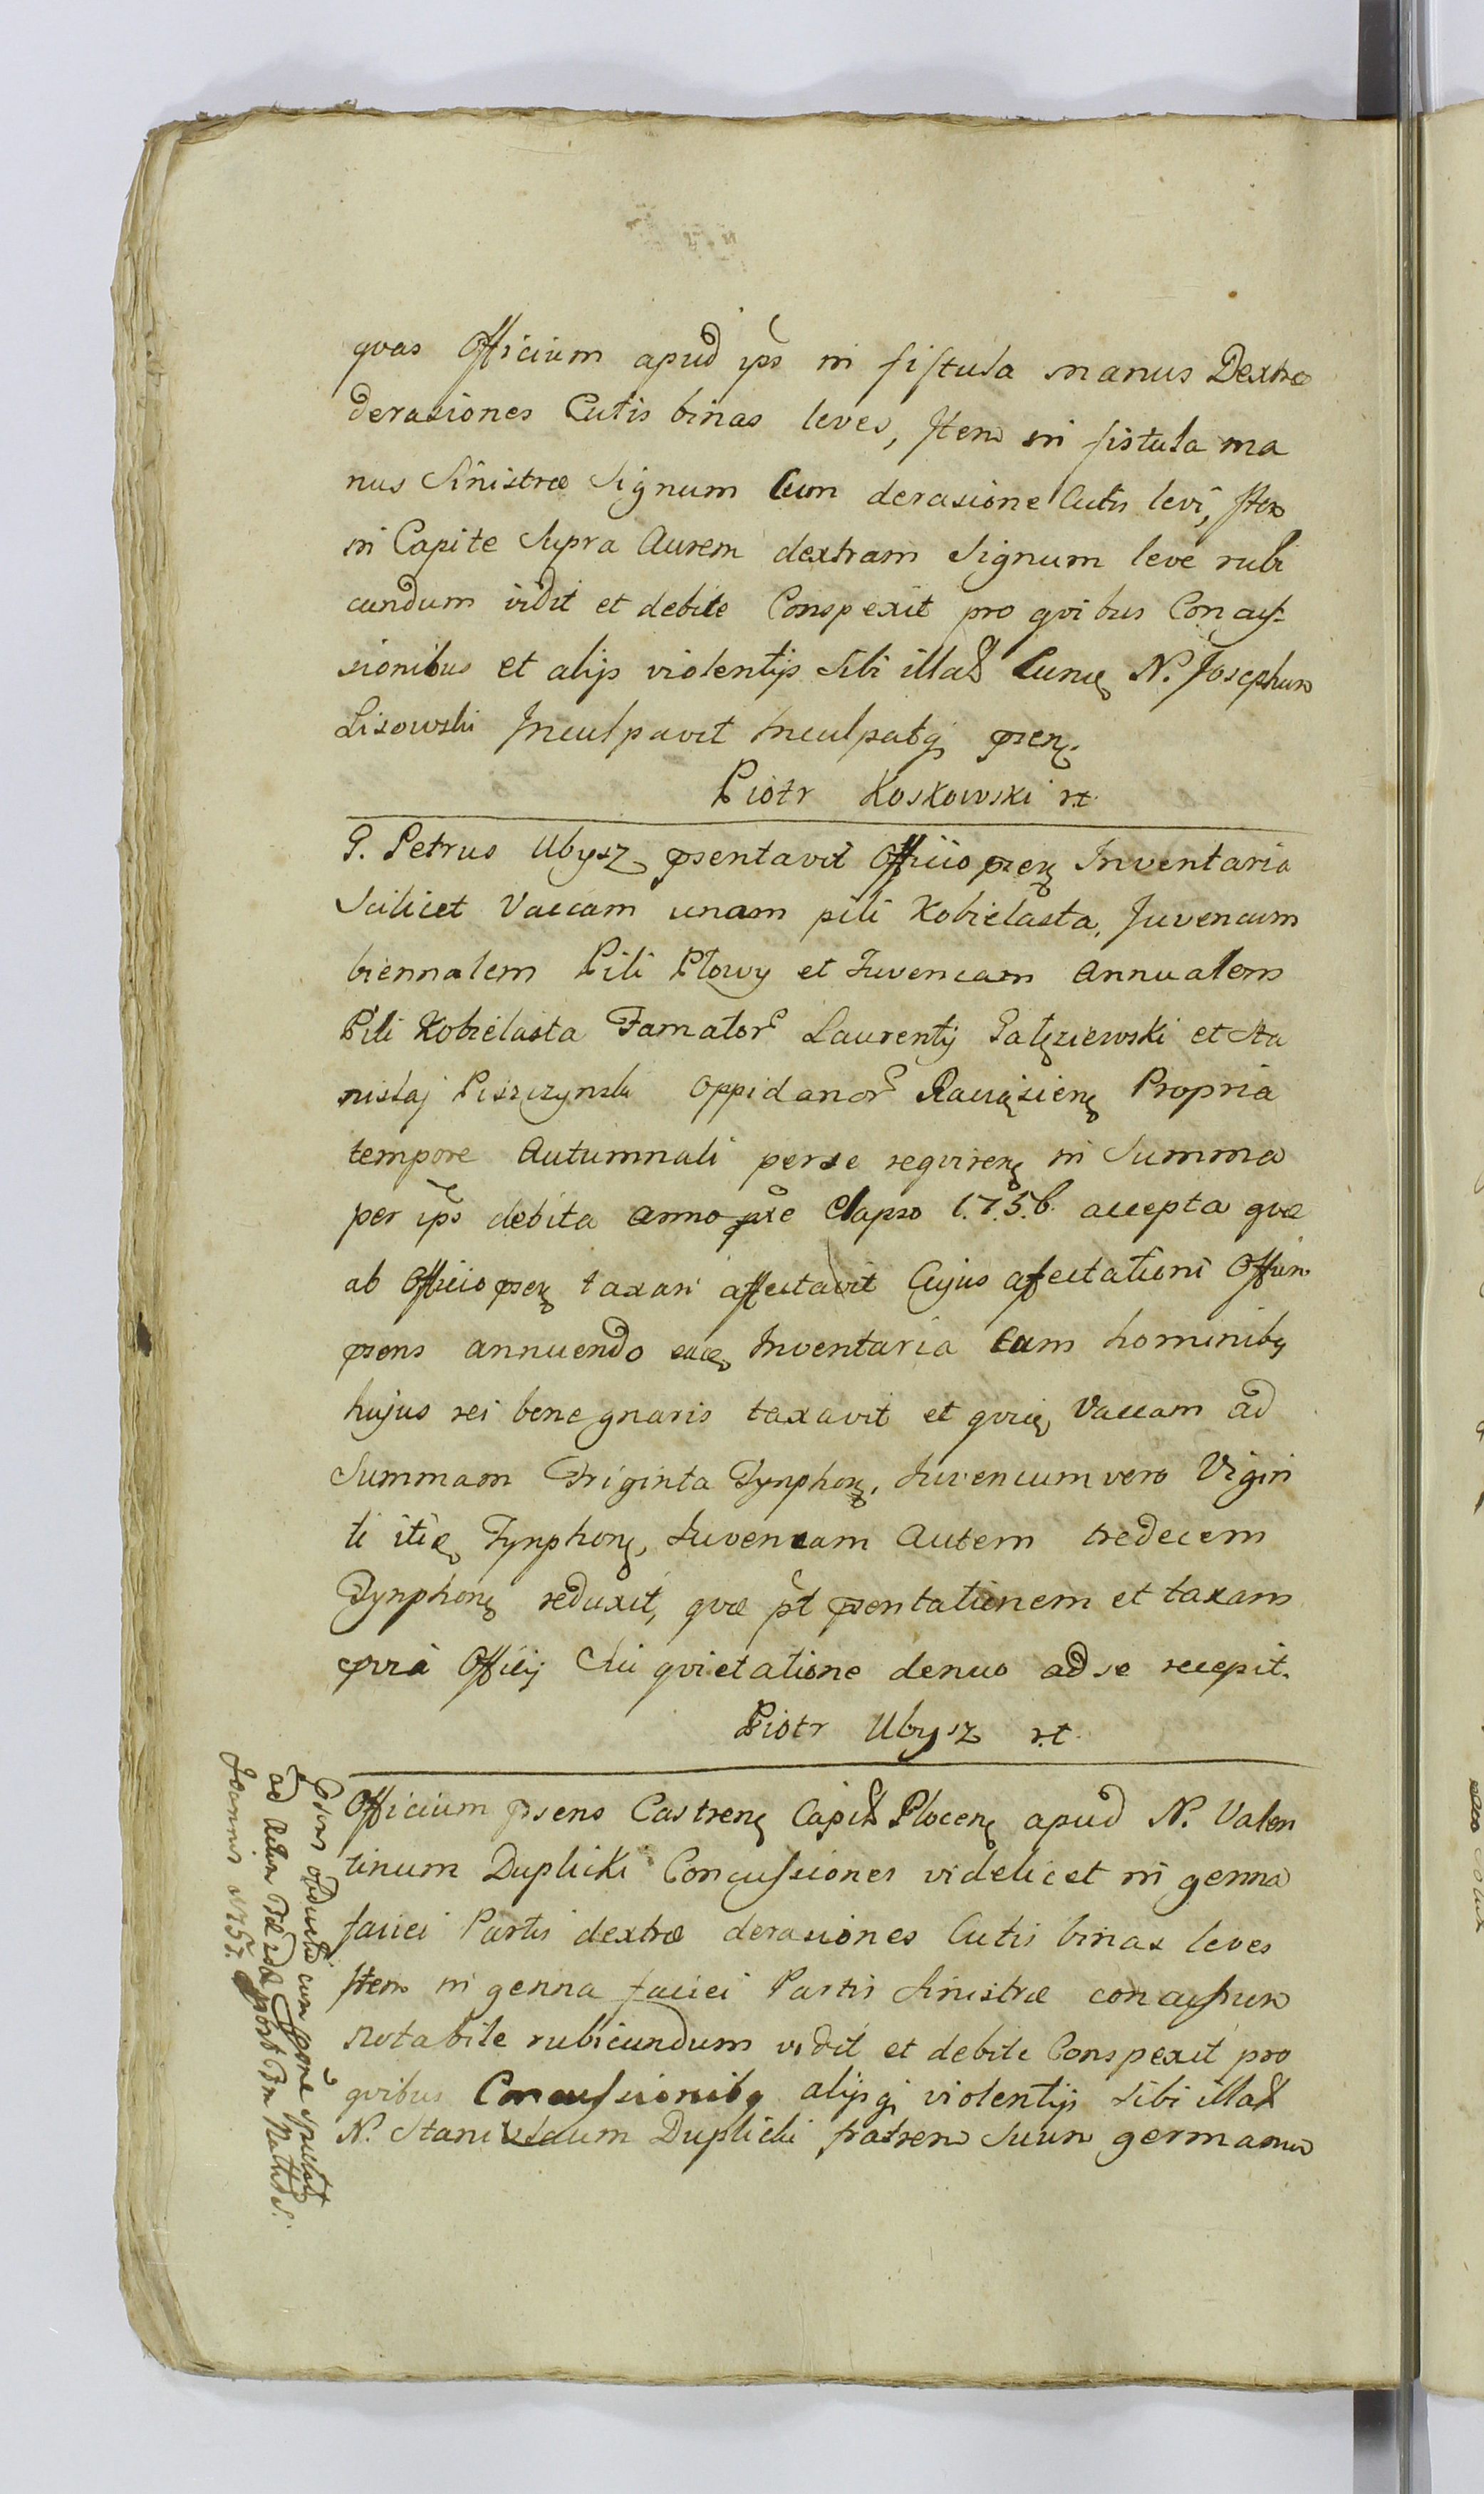 qvas Officium apud ips in fistula manus Dextræ
derasiones Cutis binas leves, Item in fistula ma
nus Sinistræ Signum Cum derasione Cutis levi, Item
in Capite Supra Aurem dextram Signum leve rubi
cundum vidit et debite Conspexit pro qvibus Concus-
sionibus et alijs violentijs Sibi illat N. Josephum
Lisowski Inculpavit Inculpatq psen.
Piotr Koskowski rt.
G. Petrus Ubysz psentavit Officio psen Inventaria
Scilicet Vaccam unam pili Kobielasta, Juvencum
biennalem Pili Płowy et Juvencam Annualem
Pili Kobielasta Famator Laurentij et Sta
nislaj Piszczynski Oppidanor Raciążien Propria
tempore Autumnali perse reqviren in Summa
per ips debita anno elapso 1.7.5.6. accepta qvæ
ab Officio psen taxari affectavit Cujus afectationi Offium
psens annuendo Inventaria Cum hominibq
hujus rei bene gnaris taxavit et Vaccam ad
Summam Triginta Tynphon, Juvencum vero Vigin
ti Tynphon, Juvencam Autem tredecem
Tynphon reduxit, qvæ pt psentationem et taxam
Officij Sui qvietatione denuo ad se recepit.
Piotr Ubysz rt.
Officium psens Castren Capit Plocen apud N. Valen
tinum Duplicki Concussiones videlicet in genna
faciei Partis dextræ derasiones Cutis binas leves
Item in genna faciei Partis Sinistræ concussum
Notabile rubicundum vidit et debite Conspexit pro
qvibus Concussionibq alijsq violentijs Sibi illat
N. Stanislaum Duplicki fratrem Suum germanum